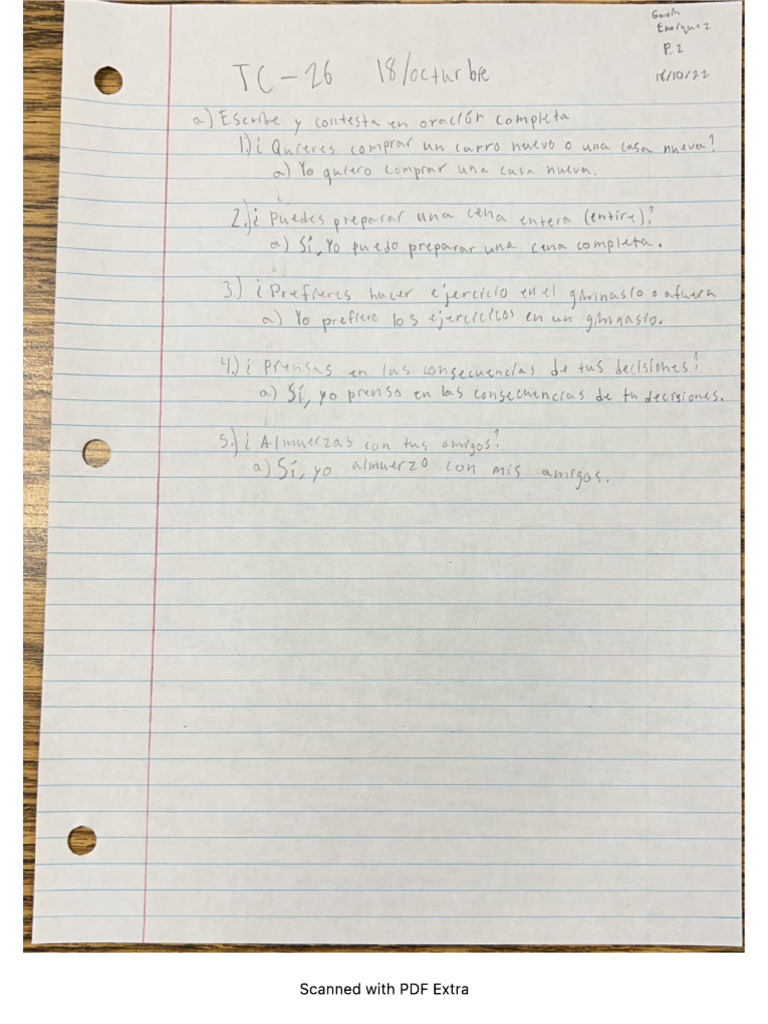 Gavin
Enriquez
P.2
18/10/22
TC-26 18/octurbre
a) Escribe y contesta en oración completa
1.) ¿Quieres comprar un carro nuevo o una casa nueva?
a) Yo quiero comprar una casa nueva.
2.) ¿Puedes preparar una cena entera (entire)?
a) Sí, Yo puedo preparar una cena completa.
3.) ¿Prefieres hacer ejercicio en el gimnasio o afuera
a) Yo prefiero los ejercicicos en un gimnasio.
4.) ¿Prensas en las consecuencias de tus decisiones?
a) Sí, yo prenso en las consecuencias de tu decisiones.
5.) ¿Almuerzas con tus amigos?
a) Sí, yo almuerzo con mis amigos.
Scanned with PDF Extra